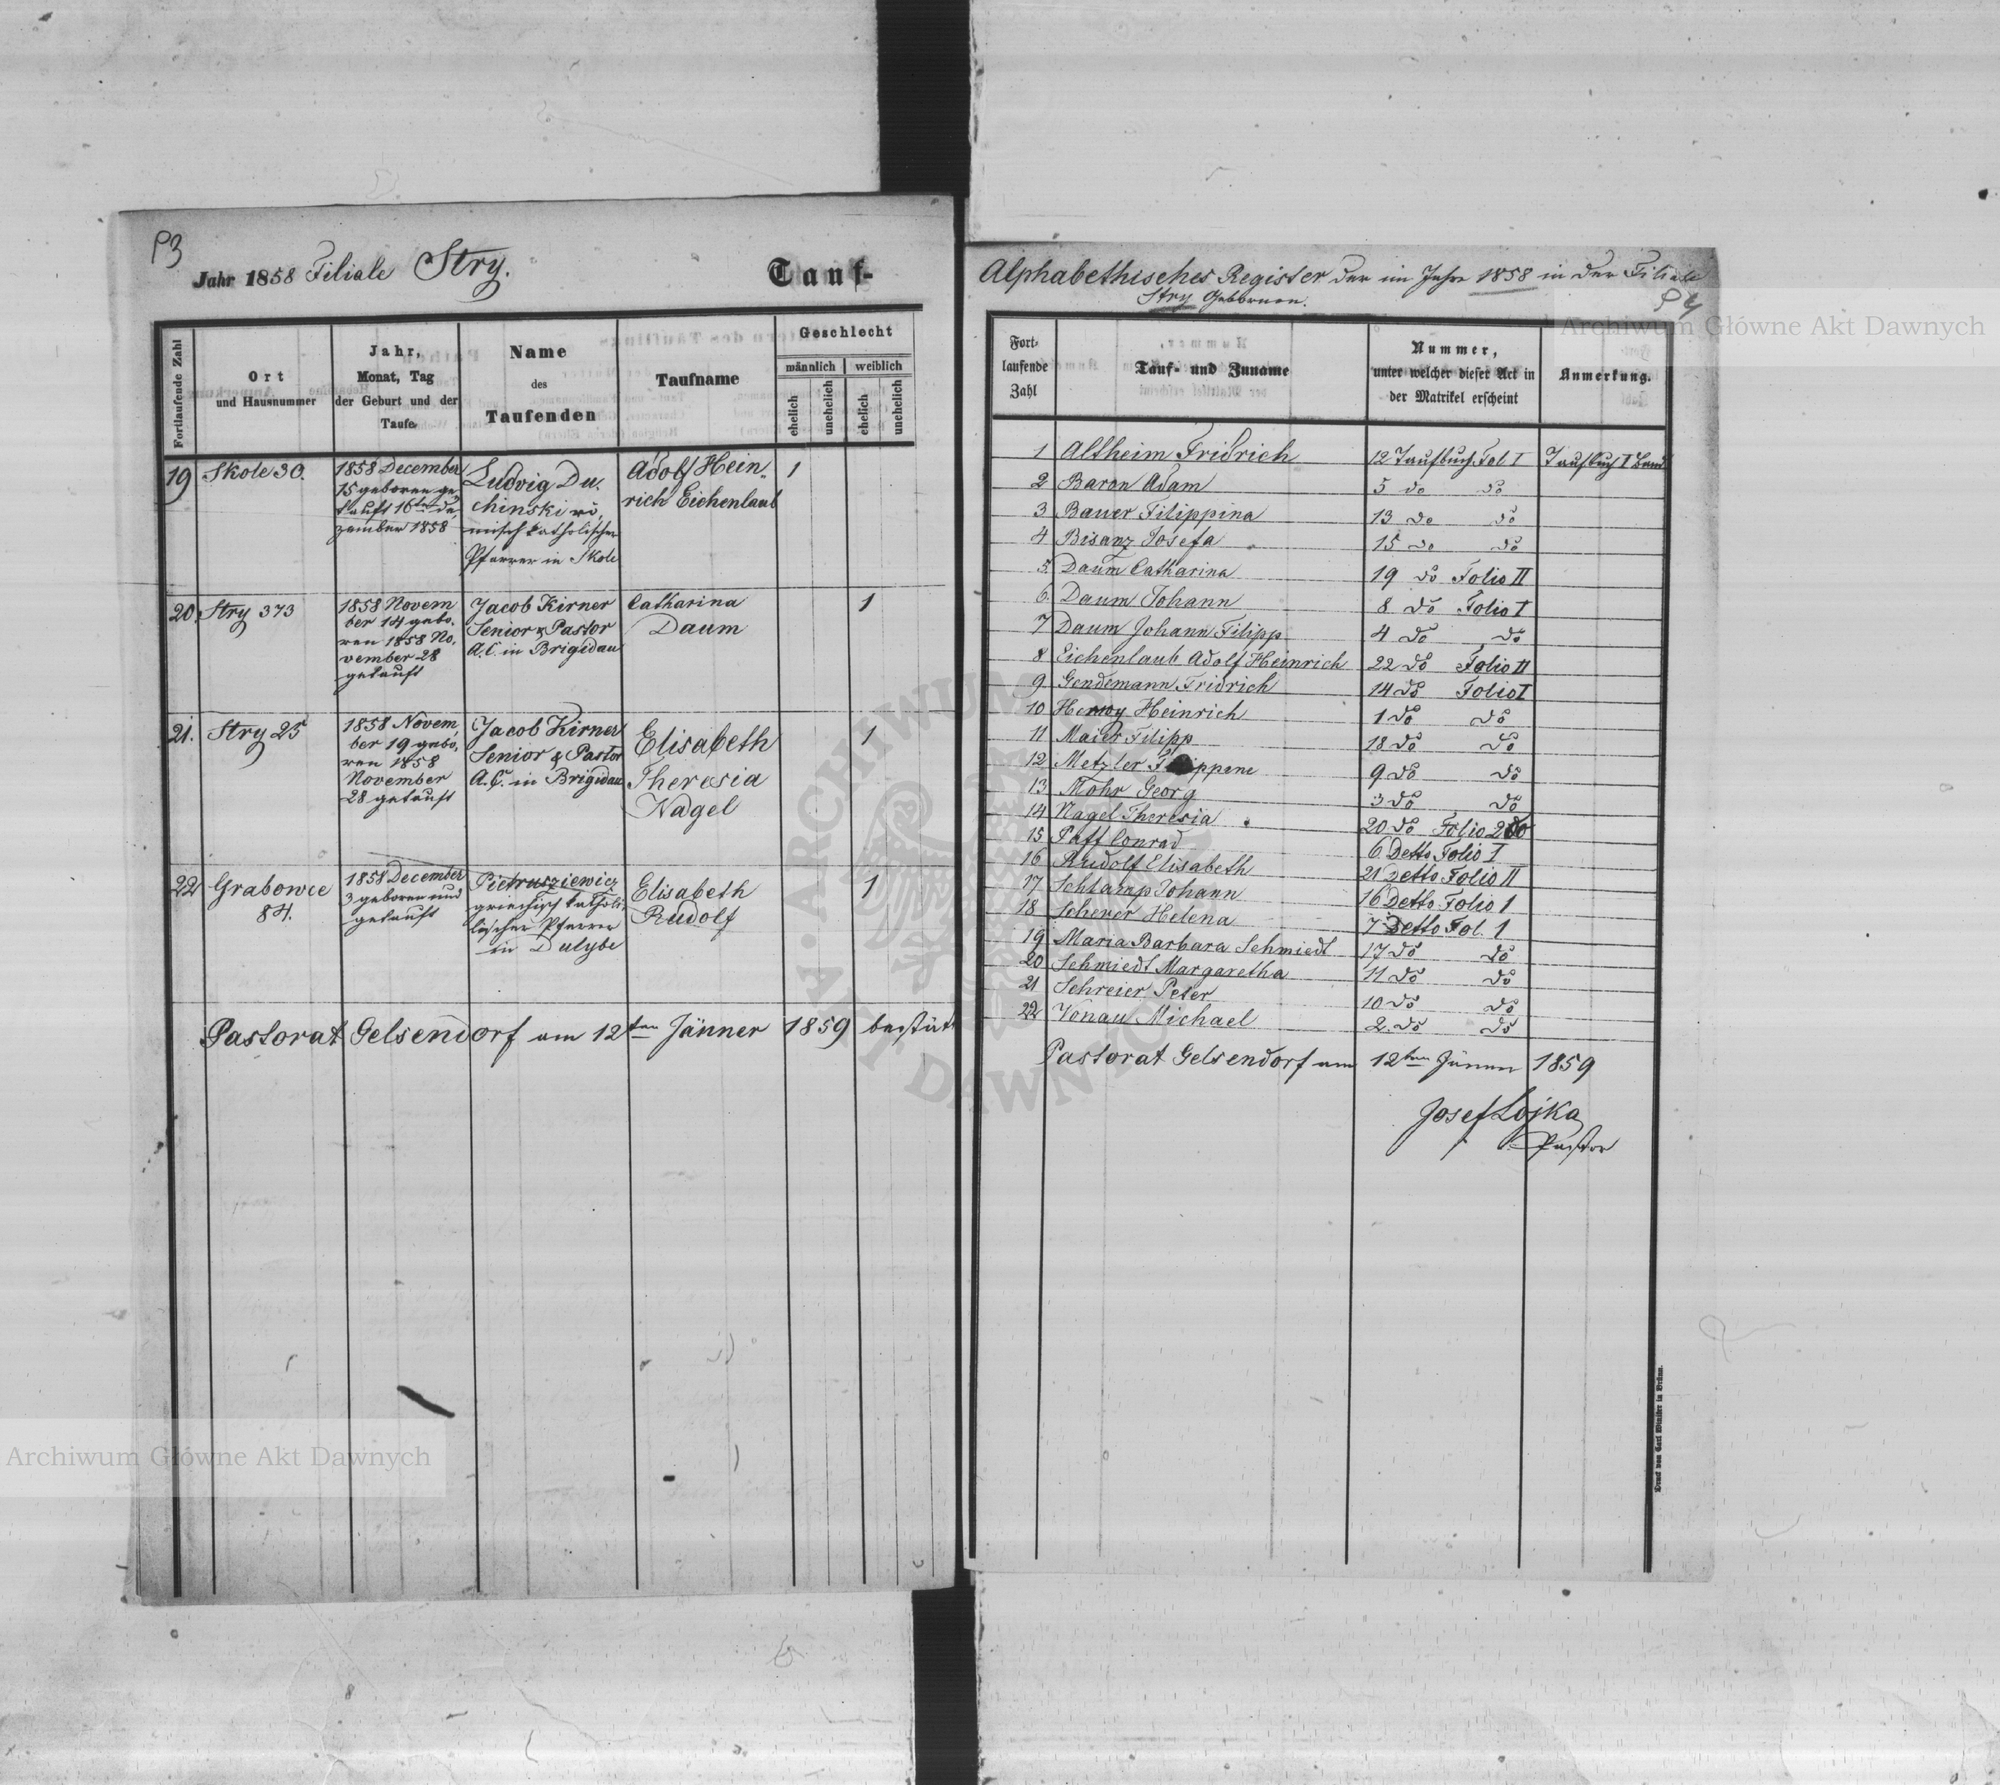 P3
Jahr 1858 Filiale Stry.
Tauf-
Fortlaufende Zahl
Ort
und Hausnummer
Jahr,
Monat, Tag
der Geburt und der
Taufe
Name
des
Taufenden
Taufname
Geschlecht
männlich
weiblich
ehelich
unehelich
ehelich
unehelich
19
Skole 30.
1858 December
15 geboren ge,
tauft 16ten De,
zember 1858
Ludvig Du,
chinski rö,
misch katholischer
Pfarrer in Skole
Adolf Hein,,
rich Eichenlaub
1
20.
Stry 373
1858 Novem
ber 14 gebo,
ren 1858 No,
vember 28
getauft
Jacob Kirner
Senior & Pastor
A.C. in Brigidau
Catharina
Daum
1
21.
Stry 25
1858 Novem,
ber 19 gebo,
ren 1858
November
28 getauft
Jacob Kirner
Senior & Pastor
A.C. in Brigidau
Elisabeth
Theresia
Nagel
1
22
Grabowce
84.
1858 December
3 geboren und
getauft
Pietrusziewicz
griechisch katholi,
lischer Pfarrer
in Dulybe
Elisabeth
Rudolf
1
Pastorat Gelsendorf am 12ten Jänner 1859
Alphabethisches Register der im Jahre 1858 in der Filiale
Stry Gebornen.
Archiwum Główne Akt Dawnych
Fort-
laufende
Zahl
Tauf- und Zuname
Nummer,
unter welcher dieser Act in
der Matrikel erscheint
Anmerkung.
1 Altheim Fridrich 12 Taufbuch Fol I Taufbuch I Band
2 Baron Adam 5 do do
3 Bauer Filippina 13 do do
4 Bisanz Josefa 15 do do
5. Daum Catharina 19 do Folio II
6. Daum Johann 8 do Folio I
7 Daum Johann Filipp 4 do do
8 Eichenlaub Adolf Heinrich 22 do Folio II
9 Gendemann Fridrich 14 do Folio I
10 Heinrich 1 do do
11 Maier Filipp 18 do do
12 Metzler 9 do do
13 Mohr Georg 3 do do
14 Nagel Theresia 20 do Folio
15 Paff Conrad 6 Detto Folio I
16 Rudolf Elisabeth 21 Detto Folio II
17 Schlamp Johann 16 Detto Folio 1
18 Scherer Helena 7 Detto Fol. 1
19 Maria Barbara Schmiedt 17 do do
20 Schmiedt Margaretha 11 do do
21 Schreier Peter 10 do do
22 Vonau Michael 2. do do
Pastorat Gelsendorf am 12ten Jänner 1859
Josef Lojka
Pastor
Druck von Carl Winiker in Brünn.
Archiwum Główne Akt Dawnych